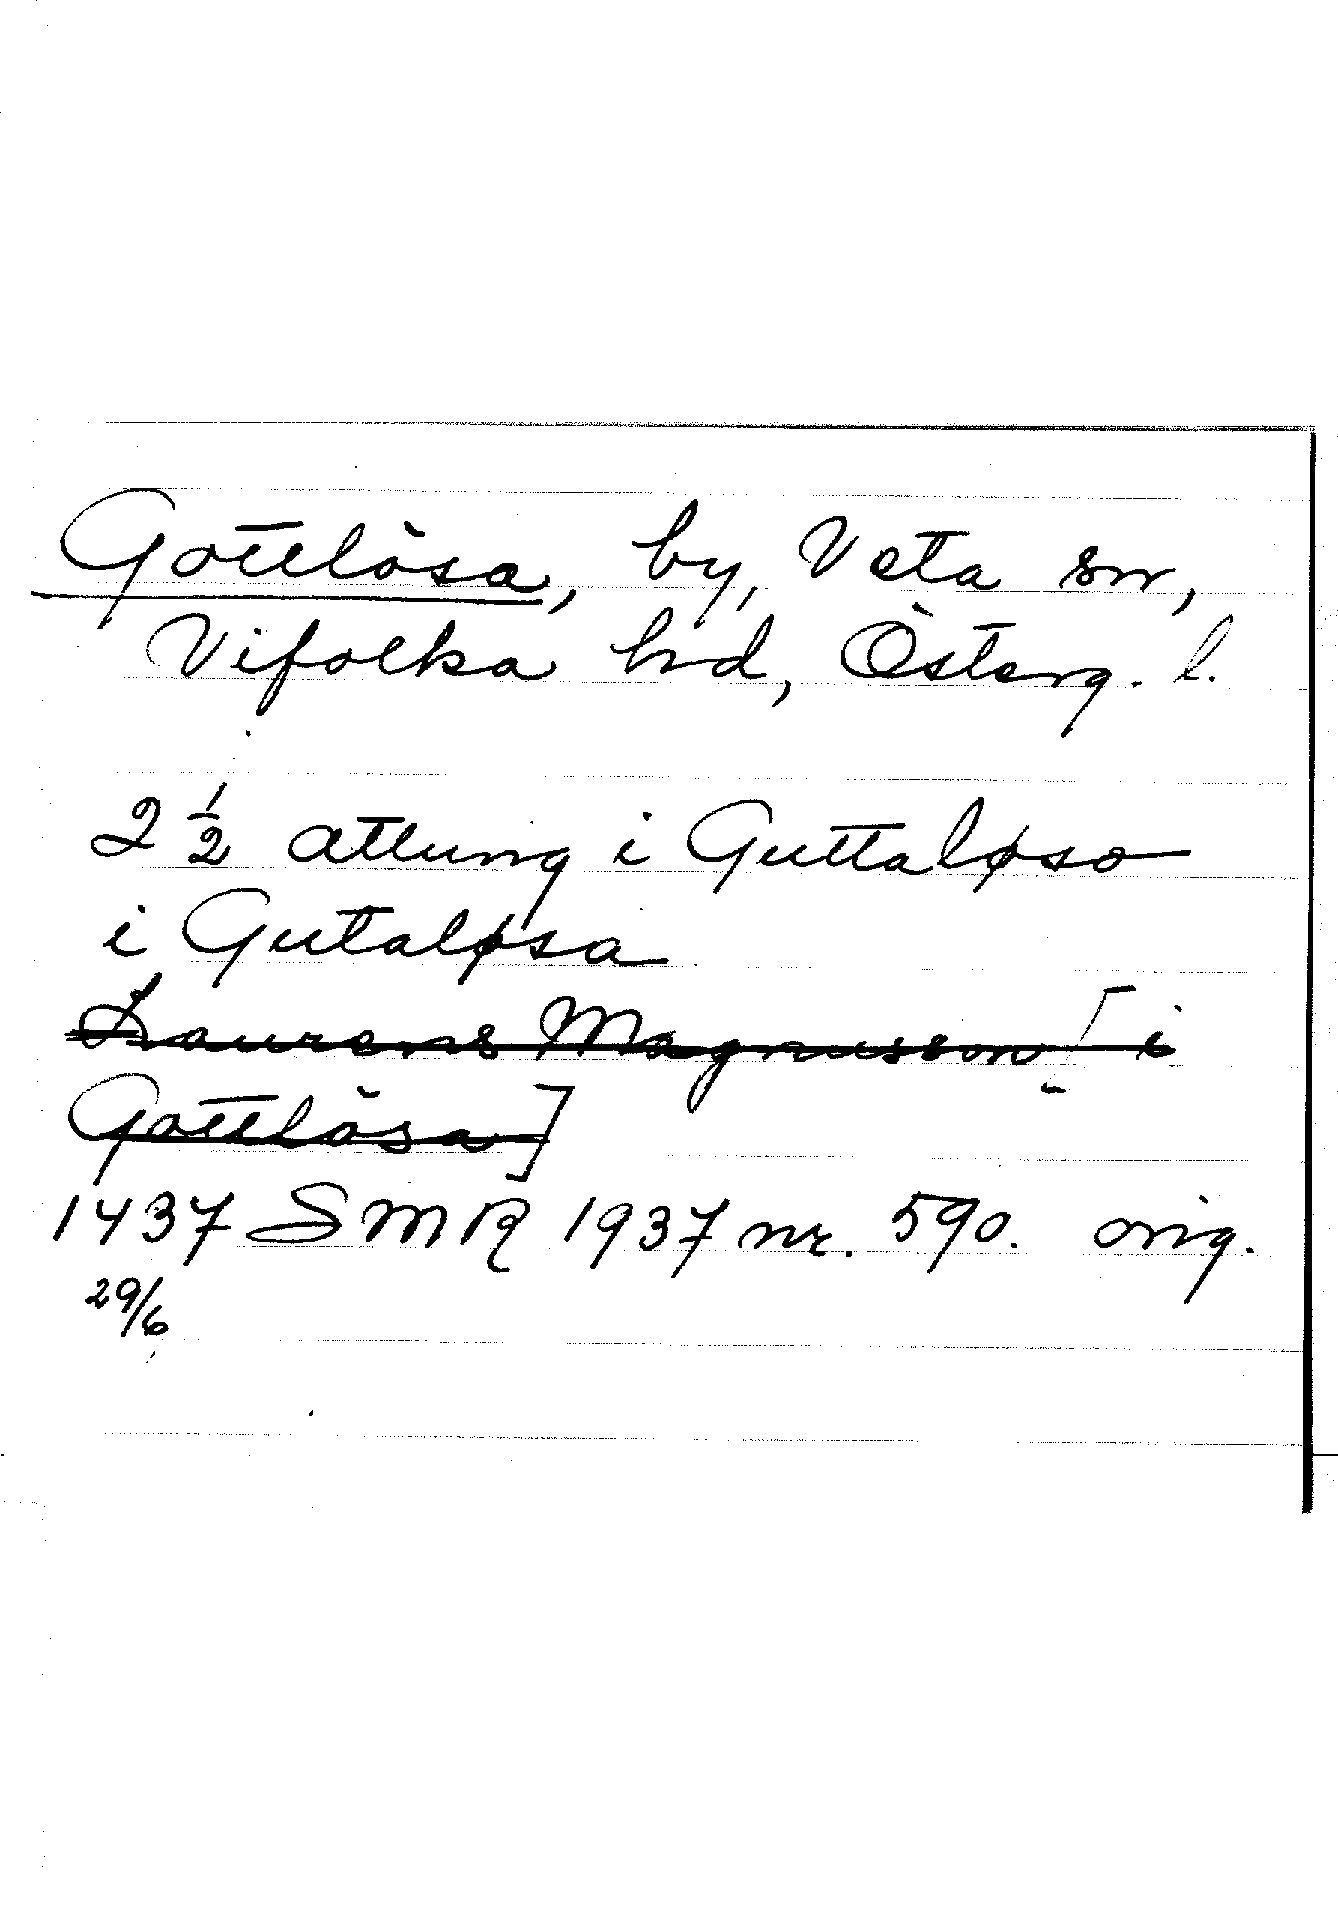 Gottlösa, by, Veta sn,
Vifolka hd, Österg. l.
2 1/2 attung i Guttaløso
i Gutaløsa
Laurens Magnusson [i
Gottlösa]
1437 SMR 1937 nr. 590. orig.
29/6